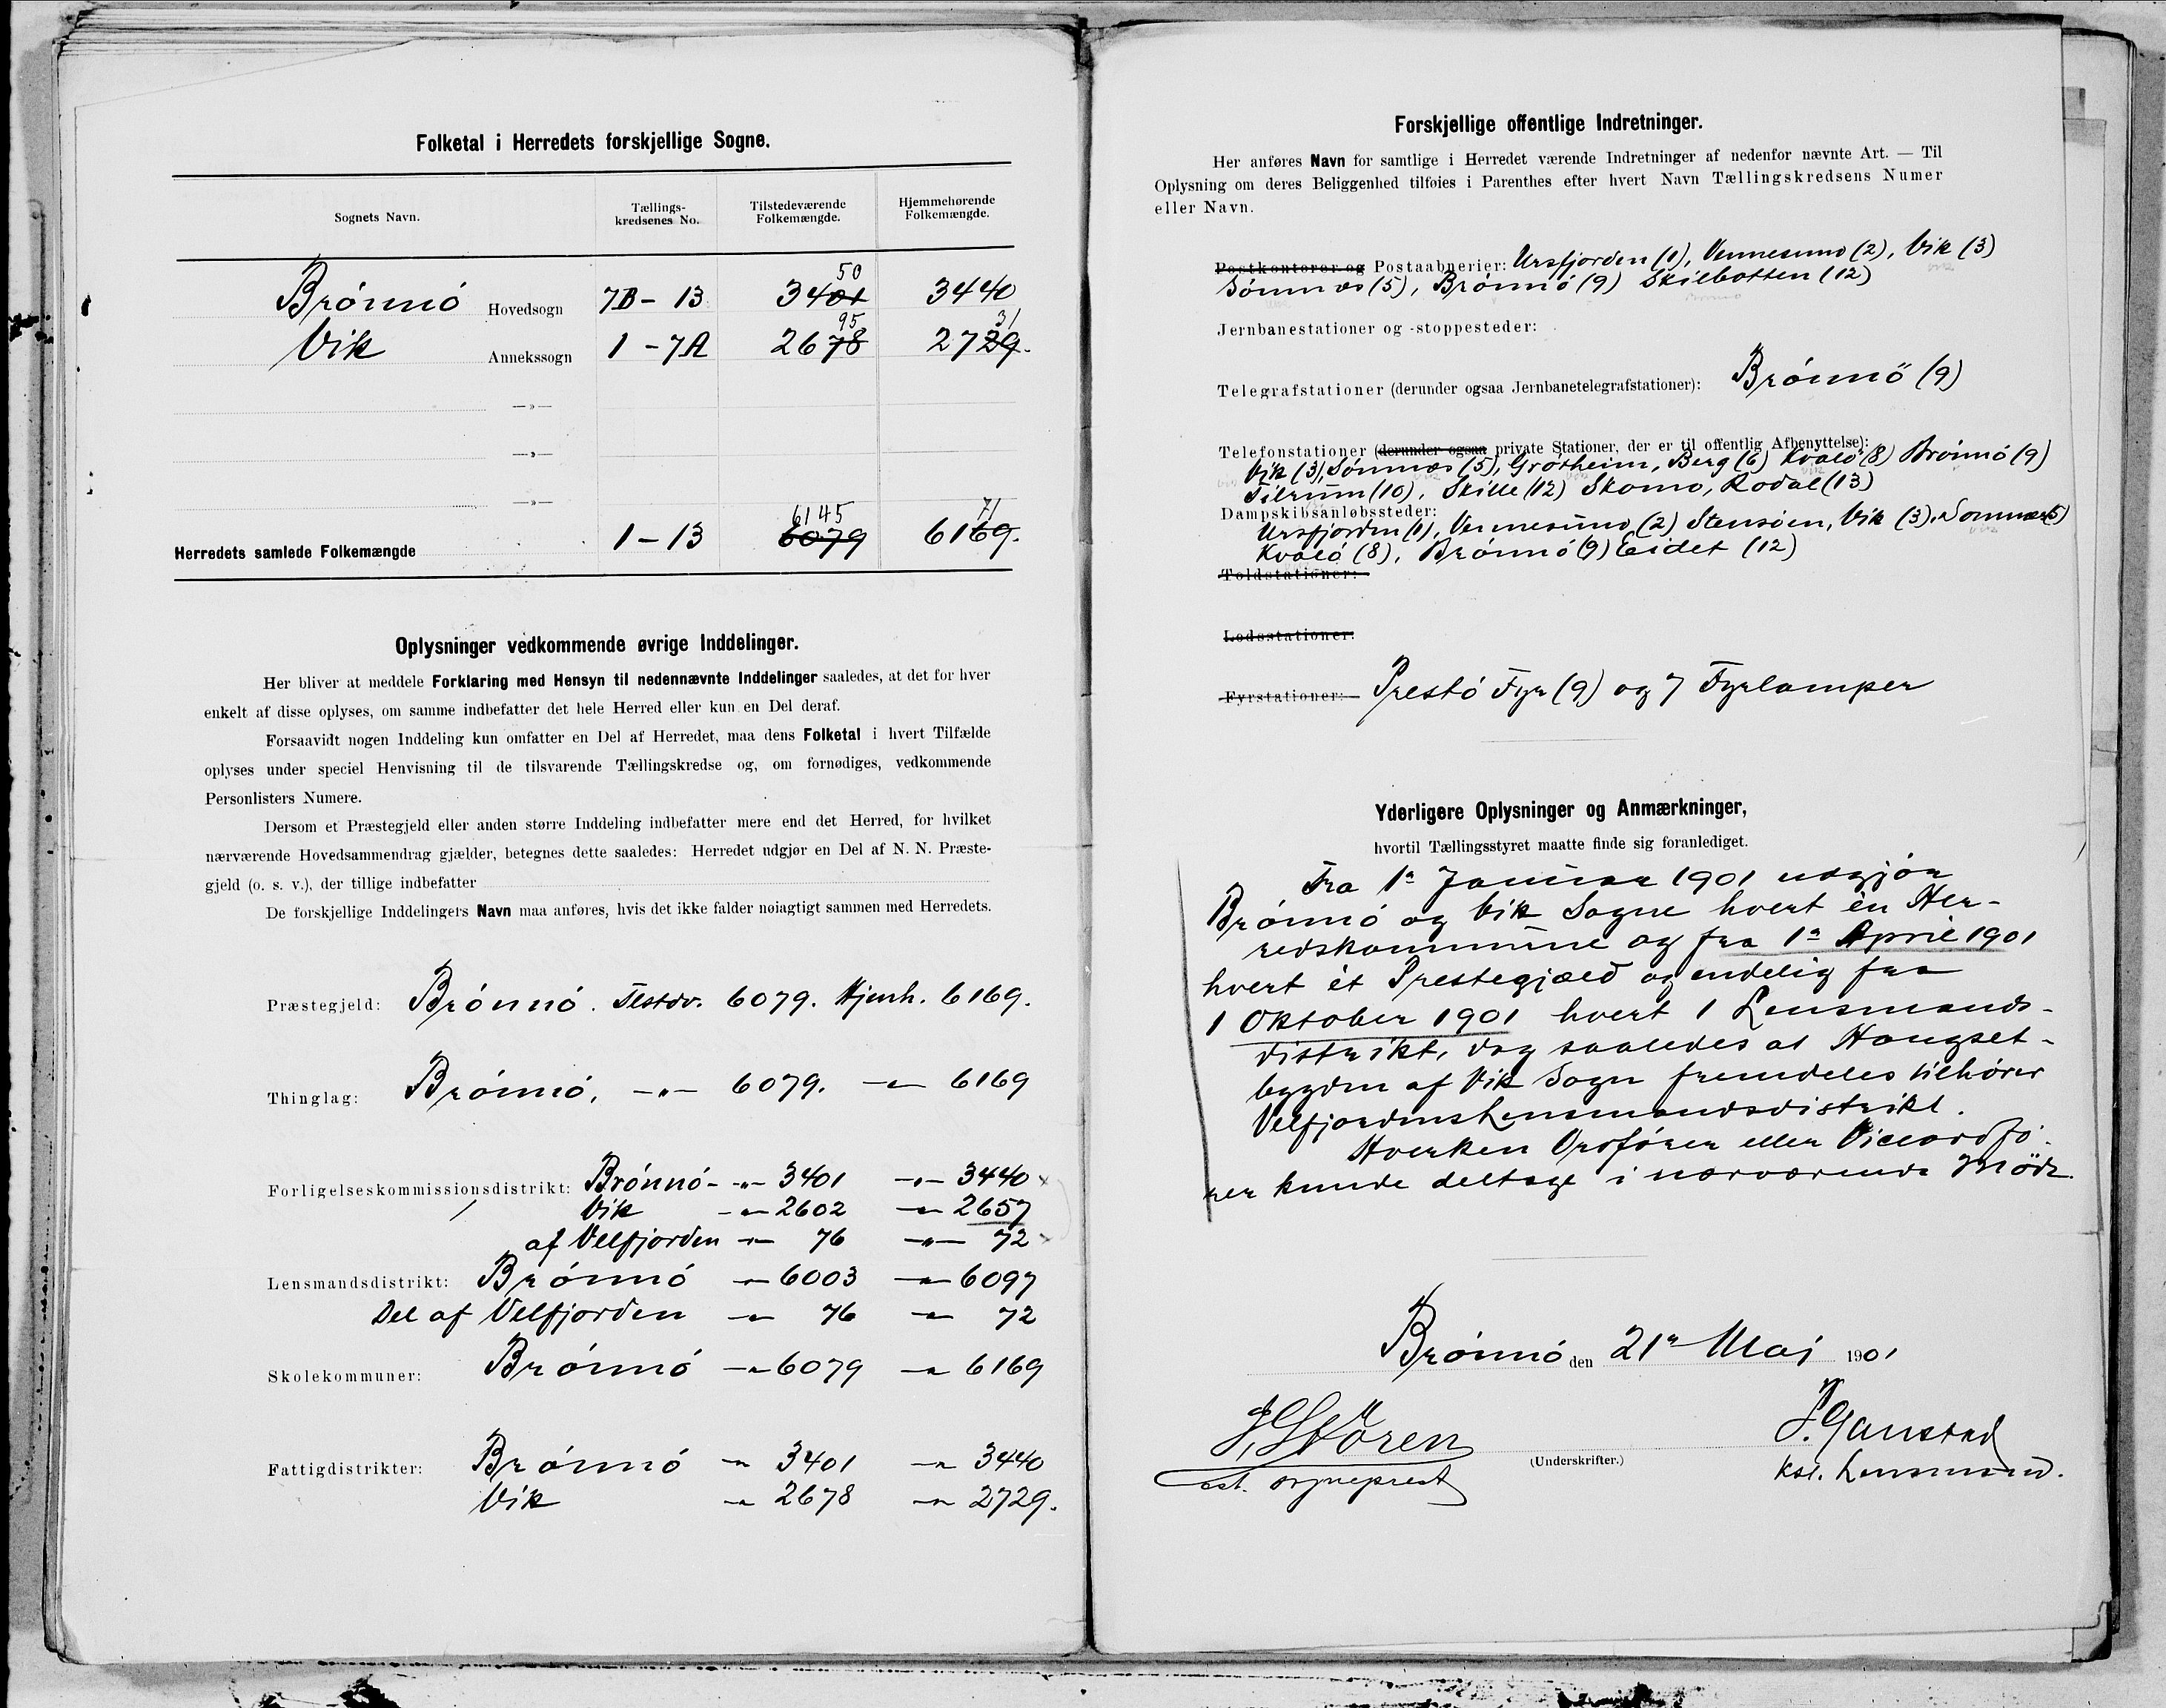 Folketal i Herredets forskjellige Sogne.
Sognets Navn. Tællings-kredsenes No. Tilstedeværende Folkemængde. Hjemmehørende Folkemængde.
50
Brønnø Hovedsogn 7B – 13 3401 3440
95 31
Vik Annekssogn 1 – 7A 2678 2729.
—»—
—»—
—»—
6145 71
Herredets samlede Folkemængde 1 – 13 6079 6169.
Oplysninger vedkommende øvrige Inddelinger.
Her bliver at meddele Forklaring med Hensyn til nedennævnte Inddelinger saaledes, at det for hver
enkelt af disse oplyses, om samme indbefatter det hele Herred eller kun en Del deraf.
Forsaavidt nogen Inddeling kun omfatter en Del af Herredet, maa dens Folketal i hvert Tilfælde
oplyses under speciel Henvisning til de tilsvarende Tællingskredse og, om fornødiges, vedkommende
Personlisters Numere.
Dersom et Præstegjeld eller anden større Inddeling indbefatter mere end det Herred, for hvilket
nærværende Hovedsammendrag gjælder, betegnes dette saaledes: Herredet udgjør en Del af N. N. Præste-
gjeld (o. s. v.), der tillige indbefatter
De forskjellige Inddelingers Navn maa anføres, hvis det ikke falder nøiagtigt sammen med Herredets.
Præstegjeld: Brønnø. Tlstdv. 6079. Hjemh. 6169.
Thinglag: Brønnø, —"— 6079. —"— 6169
Forligelseskommissionsdistrikt: Brønnø —"— 3401 —"— 3440
Vik —"— 2602 —"— 2657
af Velfjorden —"— 76 —"— 72
Lensmandsdistrikt: Brønnø —"— 6003 —"— 6097
Del af Velfjorden —"— 76 —"— 72
Skolekommuner: Brønnø —"— 6079 —"— 6169
Fattigdistrikter: Brønnø —"— 3401 —"— 3440
Vik —"— 2678 —"— 2729.
Forskjellige offentlige Indretninger.
Her anføres Navn for samtlige i Herredet værende Indretninger af nedenfor nævnte Art. — Til
Oplysning om deres Beliggenhed tilføies i Parenthes efter hvert Navn Tællingskredsens Numer
eller Navn.
Postkontorer og Postaabnerier: Ursfjorden (1), Vennesund (2), Vik (3)
Sømnæs (5), Brønnø (9) Skilbotten (12)
Jernbanestationer og -stoppesteder:
Telegrafstationer (derunder ogsaa Jernbanetelegrafstationer): Brønnø (9)
Telefonstationer (derunder ogsaa private Stationer, der er til offentlig Afbenyttelse):
Vik (3), Sømnæs (5), Grøtheim, Berg (6) Kvalø (8) Brønnø (9)
Tilrum (10), Skille (12) Skomo, Rodal (13)
Dampskibsanløbsteder:
Ursfjorden (1), Vennesund (2) Stensøen, Vik (3), Sømnæs (5)
Kvalø (8), Brønnø (9) Eidet (12)
Toldstationer:
Lodsstationer:
Fyrstationer: Prestø Fyr (9) og 7 Fyrlamper
Yderligere Oplysninger og Anmærkninger,
hvortil Tællingsstyret maatte finde sig foranlediget.
Fra 1ª Januar 1901 udgjør
Brønnø og Vik Sogne hvert èn Her-
redskommune og fra 1ª April 1901
hvert èt Prestegjæld og endelig fra
1 Oktober 1901 hvert 1 Lensmands-
distrikt, dog saaledes at Hongset-
bygden af Vik Sogn fremdeles tilhører
Velfjordens Lensmandsdistrikt.
Hverken Ordfører eller Viceordfø-
rer kunde deltage i nærværende Møde.
Brønnø den 21ᵈᵉ Mai 1901
(Underskrifter.)
cst. sogneprest kst. Lensmand.